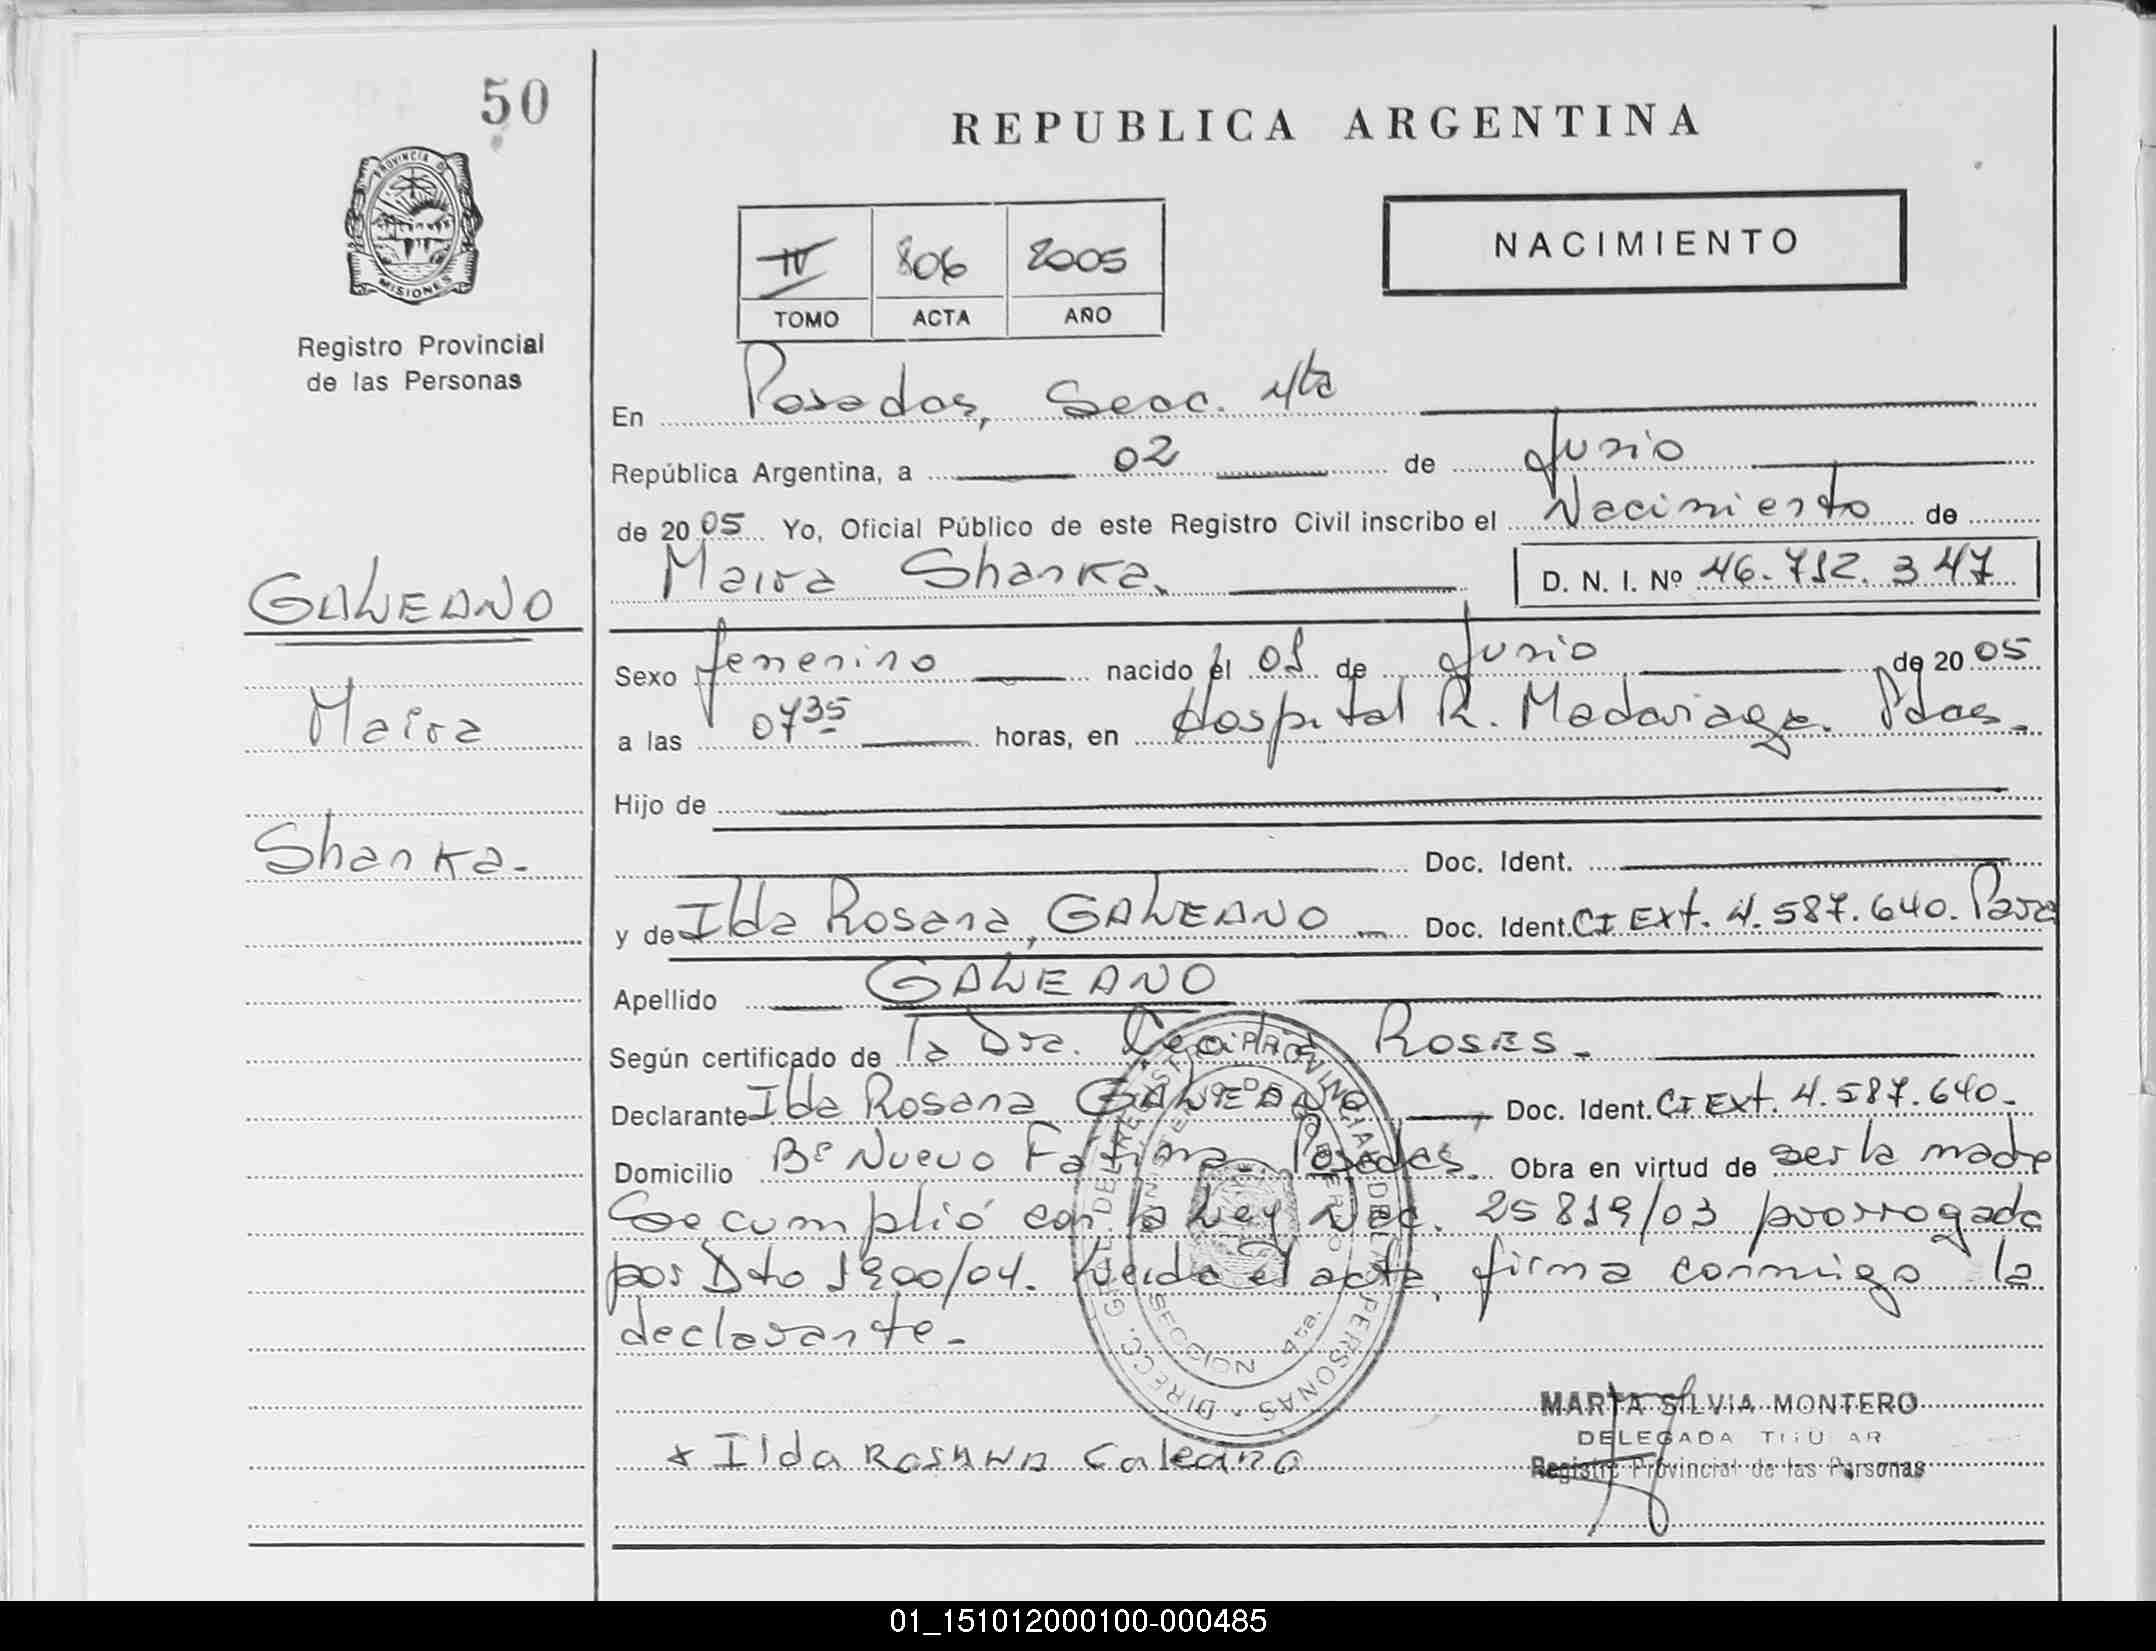 50
REPUBLICA ARGENTINA
PROVINCIA D
MISIONES
Registro Provincial
de las Personas
IV 806 2005
TOMO ACTA AÑO
NACIMIENTO
En Posadas, Secc. 4ta
República Argentina, a 02 de Junio
de 20 05 Yo, Oficial Público de este Registro Civil inscribo el Nacimiento de
Maira Shanka. D. N. I. Nº 46.712.347
GALEANO
Maira
Shanka.
Sexo femenino nacido el 01 de Junio de 20 05
a las 0735 horas, en Hospital R. Madariaga. Pdas.
Hijo de
Doc. Ident.
y de Ilda Rosana, GALEANO Doc. Ident. CI Ext. 4.587.640. Para
Apellido GALEANO
Según certificado de la Dra. Cecilia Roses.
Declarante Ilda Rosana GALEANO, Doc. Ident. CI Ext. 4.587.640.
Domicilio Bº Nuevo Fatima. Posadas. Obra en virtud de ser la madre
Se cumplió con la Ley Nac. 25819/03 prorrogada
por Dto 1900/04. Leida el acta, firma conmigo la
declarante.
DIRECC. GRAL. DEL REGISTRO PROVINCIAL DE LAS PERSONAS
SECCION 4ta.
x Ilda ROSANA Galeano
MARTA SILVIA MONTERO
DELEGADA TITULAR
Registro Provincial de las Personas
01_151012000100-000485